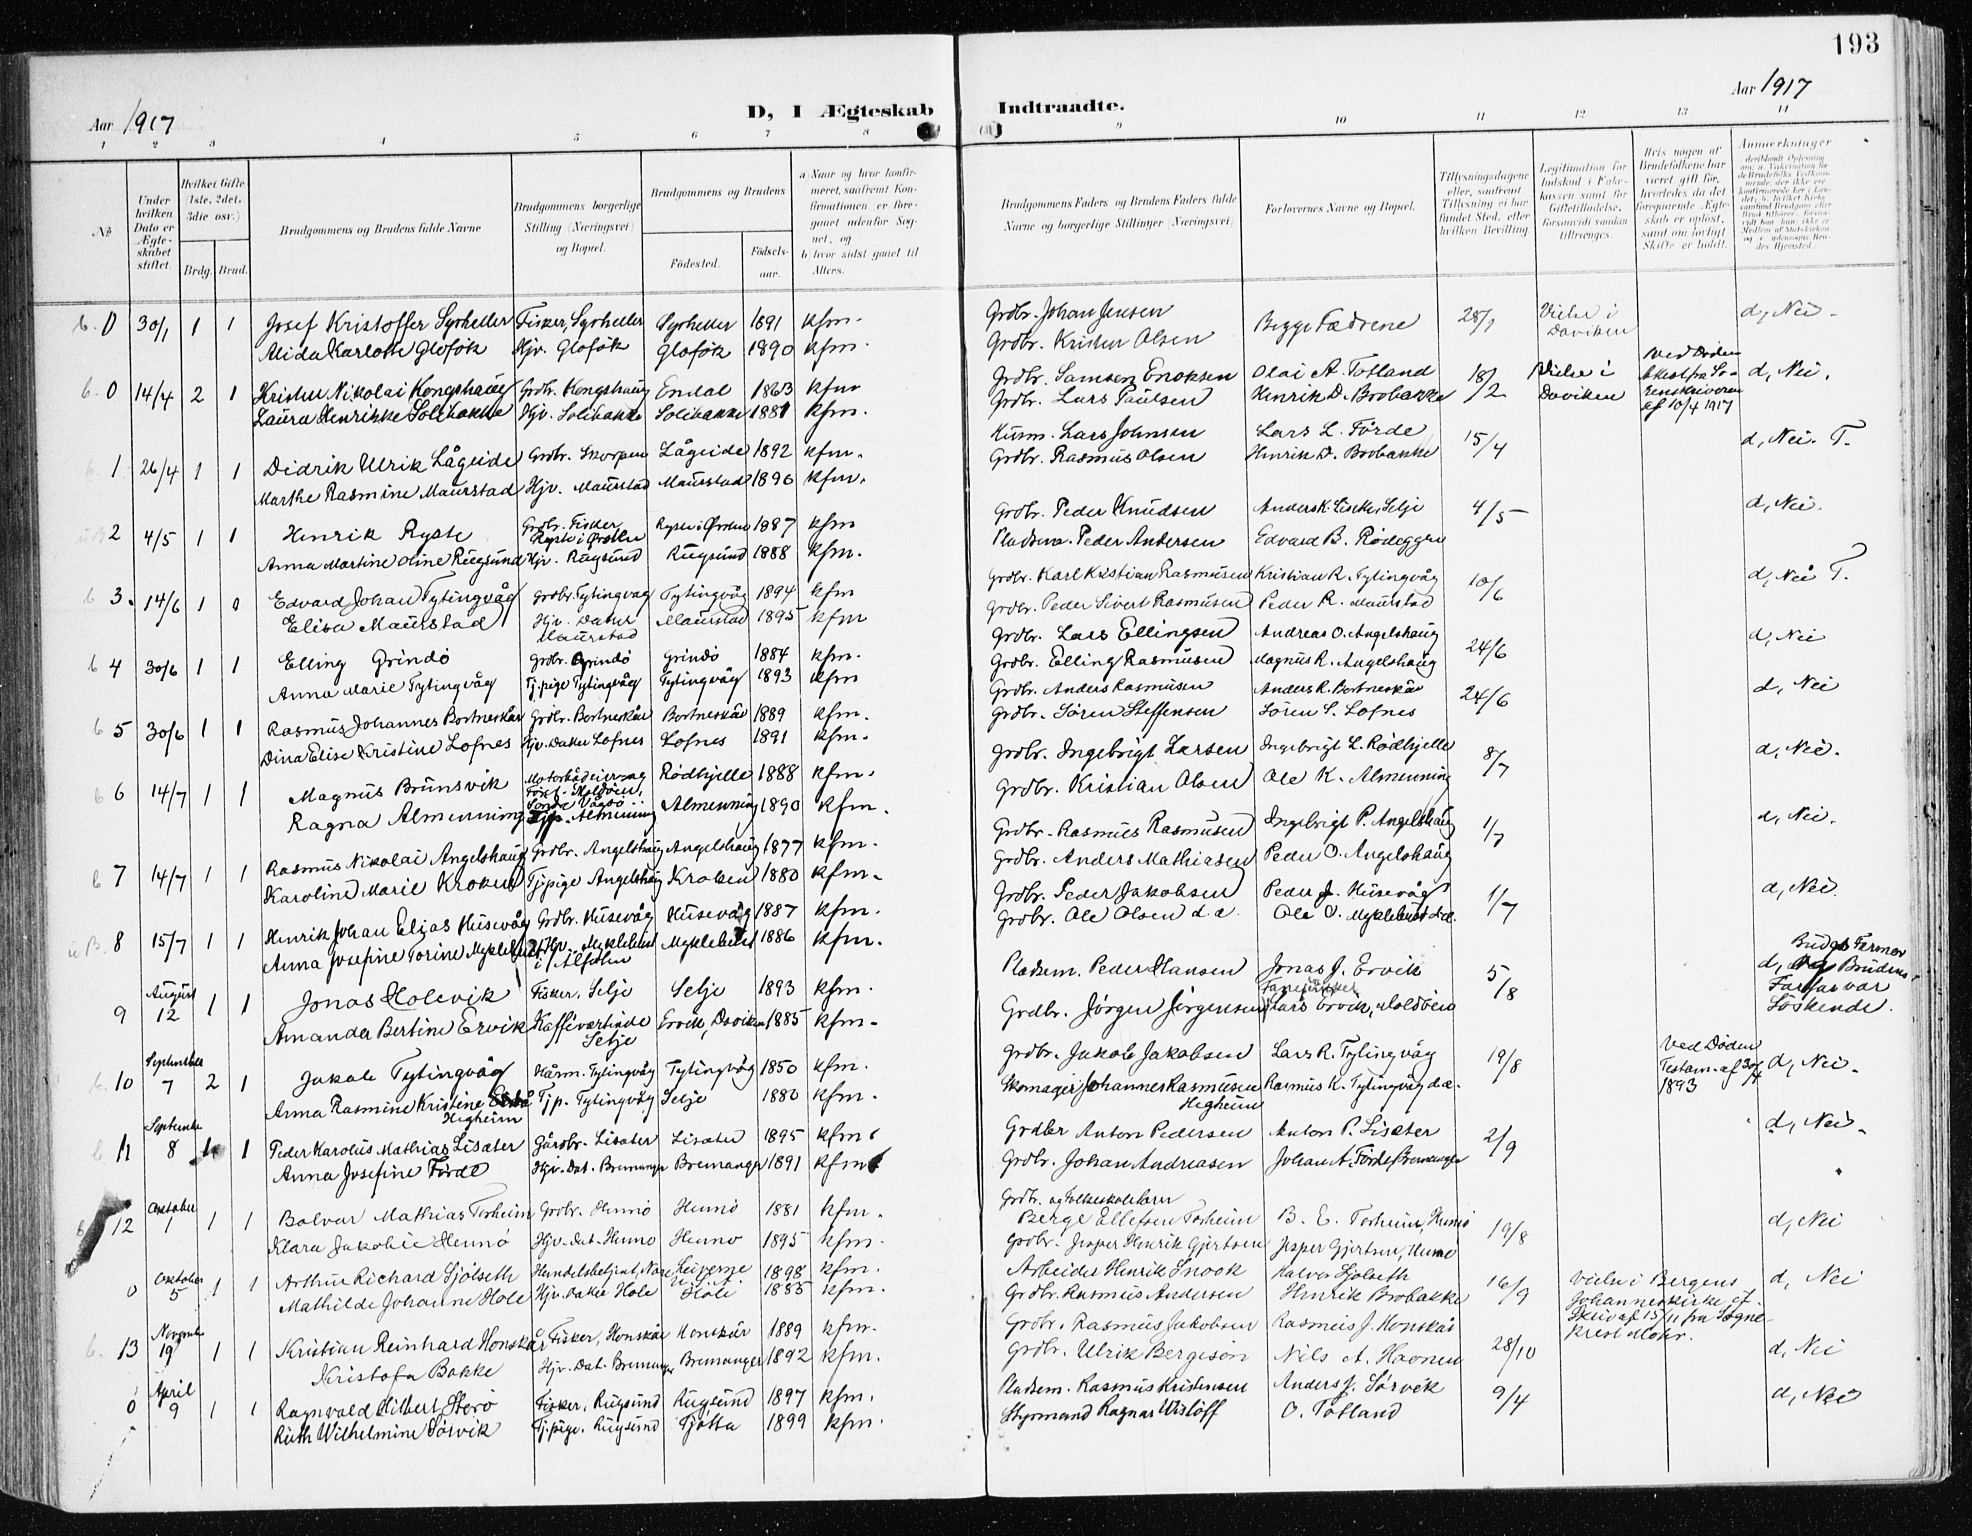 193
Aar 1917
D, I Ægteskab Indtraadte.
Aar 1917
1 2 3 4 5 6 7 8 9 10 11 12 13 14
No
Under hvilken Dato er Ægteskabet stiftet.
Hvilket Gifte 1ste, 2det, 3die osv.)
Brdg. Brud.
Brudgommens og Brudens fulde Navne
Brudgommens borgerlige Stilling (Næringsvei) og Bopæl.
Brudgommens og Brudens
Fødested. Fødselsaar.
a Naar og hvor konfirmeret, saafremt Konfirmationen er foregaaet udenfor Sognet, og
b hvor sidst gaaet til Alters.
Brudgommens Faders og Brudens Faders fulde Navne og borgerlige Stillinger (Næringsvei)
Forlovernes Navne og Bopæl.
Tillysningsdagene eller, saafremt Tillysning ei har fundet Sted, efter hvilken Bevilling
Legitimation for Indskud i Enkekassen samt for Giftetilladelse, forsaavidt saadan tiltrænges.
Hvis nogen af Brudefolkene har været gift før, hvorledes da det foregaaende Ægteskab er opløst, samt om lovligt Skifte er holdt.
Anmerkninger
b. 0 30/1 1 1 Josef Kristoffer Syrheller Fisker, Syrheller Syrheller 1891 kfm. Grdbr. Johan Jensen Begge Fædrene 28/1 Vielse i Daviken d, Nei.
Alida Karlotte Glofök Hjv. Glofök Glofök 1890 kfm. Grdbr. Kristen Olsen
b. 0 14/4 2 1 Kristen Nikolai Kongshaug Grdbr. Kongshaug Endal 1863 kfm Grdbr. Samson Enoksen Olai A. Totland 18/2 Vielse i Daviken Ved Døden Attest fra Sorenskriveren af 10/4 1917 d, Nei.
Laura Henrikke Solibakke Hjv. Solibakke Solibakke 1881 kfm. Grdbr. Lars Paulsen Henrik D. Brobakke
1 26/4 1 1 Didrik Ulrik Lågeide Grdbr. Skorpen Lågeide 1892 kfm. Husm. Lars Johnsen Lars L. Förde 15/4 d, Nei. T.
Marthe Rasmine Maurstad Hjv. Maurstad Maurstad 1896 kfm. Grdbr. Rasmus Olsen Henrik D. Brobakke
2 4/5 1 1 Henrik Ryste Grdbr. Fisker Ryste i Ørsten Ryste i Ørsten 1887 kfm Grdbr. Peder Knudsen Anders K. Liset, Selje 4/5 d, Nei.
Anna Martine Oline Rugsund Hjv. Rugsund Rugsund 1888 kfm. Pladsm. Peder Andersen Edvard B. Rødeggen
b 3. 14/6 1 0 Edvard Johan Tytingvåg Grdbr. Tytingvåg Tytingvåg 1894 kfm Grdbr. Karl Kristian Rasmussen Kristian R. Tytingvåg 10/6 d, Nei T.
Elisa Maurstad Hjv. Datter Maurstad Maurstad 1895 kfm Grdbr. Peder Sivert Rasmussen Peder R. Maurstad
b 4 30/6 1 1 Elling Grindö Grdbr. Grindö Grindö 1884 kfm. Grdbr. Lars Ellingsen Andreas O. Angelshaug 24/6 d, Nei
Anna Marie Tytingvåg Tj.pige Tytingvåg Tytingvåg 1893 kfm Grdbr. Elling Rasmussen Magnus R. Angelshaug
b 5 30/6 1 1 Rasmus Johannes Bortneskår Grdbr. Bortneskår Bortneskår 1889 kfm. Grdbr. Anders Rasmusen Anders R. Bortneskår 24/6 d, Nei
Dina Elise Kristine Lofnes Hjv. Datter Lofnes Lofnes 1891 kfm. Grdbr. Søren Steffensen Søren S. Lofnes
b 6 14/7 1 1 Magnus Brunsvik Motorbådeier og Fisk. Moldöen, Sondre Vågsö Rødhjelle 1888 kfm. Grdbr. Ingebrigt Larsen Ingebrigt L. Rødhjelle 8/7 d, Nei.
Ragna Almenning Tjp. Almenning Almenning 1890 kfm. Grdbr. Kristian Olsen Ole K. Almenning
b 7 14/7 1 1 Rasmus Nikolai Angelshaug Grdbr. Angelshaug Angelshaug 1877 kfm. Grdbr. Rasmus Rasmusen Ingebrigt P. Angelshaug 1/7 d, Nei.
Karoline Marie Kroken Tj.pige Angelshaug Kroken 1880 kfm. Grdbr. Anders Mathiasen Peder O. Angelshaug
u B. 8 15/7 1 1 Henrik Johan Elias Husevåg Grdbr. Husevåg Husevåg 1887 kfm. Grdbr. Peder Jakobsen Peder J. Husevåg 1/7 d, Nei
Anna Josefine Torine Myklebust Hjv. Myklebust i Ålfoten Myklebust 1886 kfm. Grdbr. Ole Olsen d.a. Ole O. Myklebust d.e.
9 August 12 1 1 Jonas Holevik Fisker, Selje Selje 1893 kfm. Pladsm. Peder Hansen Jonas J. Ervik 5/8 d, Brudg.s Farmor og Brudens Farfar var Söskende.
Amanda Bertine Ervik Kaffeværtinde Selje Ervik, Daviken 1885 kfm. Grdbr. Jørgen Jørgensen Lars Ervik, Moldöen
b. 10 September 7 2 1 Jakob Tytingvåg Husm. Tytingvåg Tytingvåg 1850 kfm. Grdbr. Jakob Jakobsen Lars R. Tytingvåg 19/8 Ved Døden Testam. af 30/4 1893 d, Nei.
Anna Rasmine Kristine Higheim Tjp. Tytingvåg Selje 1880 kfm. Skomager Johannes Rasmusen Higheim Rasmus K. Tytingvåg d.e.
b 11 September 8 1 1 Peder Karolus Mathias Lisæter Gårdbr. Lisæter Lisæter 1895 kfm. Grdbr Anton Pedersen Anton P. Lisæter 2/9 d, Nei.
Anna Josefine Förde Hjv. Dat. Bremanger Bremanger 1891 kfm. Grdbr. Johan Andreasen Johan A. Förde, Bremanger
12 Oktober 1 1 1 Bolvar Mathias Torheim Grdbr. Hennö Hennö 1881 kfm. Grdbr. og Folkeskolelærer Berge Ellefsen Torheim B. E. Torheim, Hennö 19/8 d, Nei
Klara Jakobie Hennö Hjv. Dat. Hennö Hennö 1895 kfm. Grdbr. Jesper Henrik Gjertsen Jesper Gjertsen, Hennö
0 Oktober 5 1 1 Arthur Richard Sjölseth Handelsbetjent, Nore 1898 kfm. Arbeider Henrik Snook Halvor Sjölseth 16/9 Vielse i Bergens Johanneskirke d, Nei
Mathilde Johanne Hole Hjv. Datter Hole Hole 1885 kfm. Grdbr. Rasmus Andersen Henrik Brobakke
b. 13 November 19 1 1 Kristian Reinhard Honskår Fisker, Honskår Honskår 1889 kfm. Grdbr. Rasmus Jakobsen Rasmus J. Honskår 28/10 d, Nei
Kristofa Bakke Hjv. Dat. Bremanger Bremanger 1892 kfm. Grdbr. Ulrik Bergeson Nils A. Havnen
0 April 9 1 1 Ragnvald Hilbert Sterö Fisker, Rugsund Rugsund 1897 kfm. Pladsem. Rasmus Kristensen Anders J. Sörvik 9/4 d, Nei
Ruth Wilhelmine Sörvik Tj.pige. Rugsund Tjötta 1899 kfm. Styrmand Ragnar Wislöff O. Totland